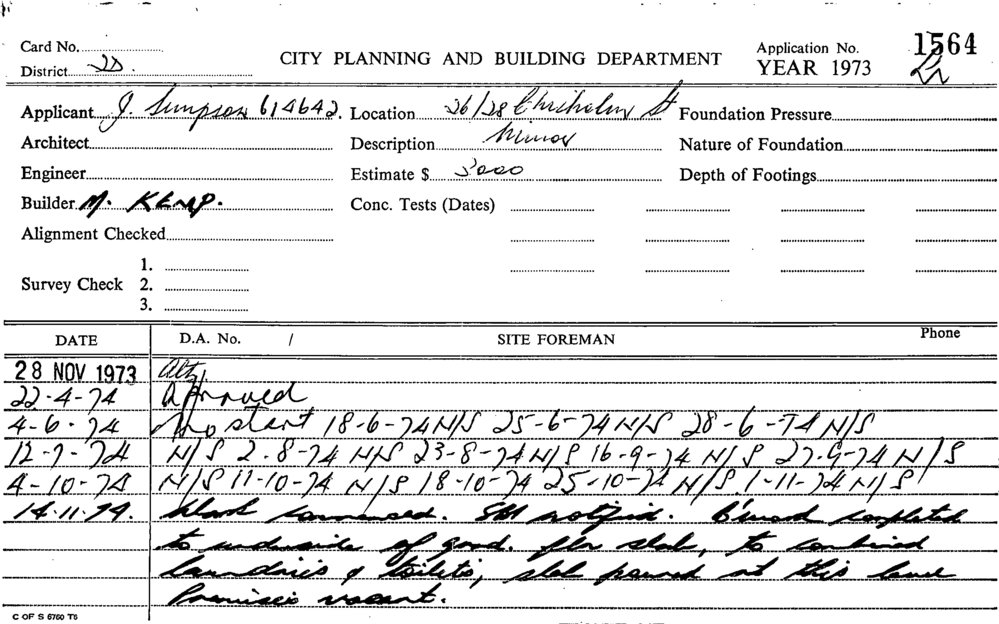 Card No.
District 2D
CITY PLANNING AND BUILDING DEPARTMENT
Application No. 1564
YEAR 1973
Applicant J. Simpson 614642. Location 26/28 Chisholm St Foundation Pressure
Architect Description Minor Nature of Foundation
Engineer Estimate $ 3000 Depth of Footings
Builder M. KEMP. Conc. Tests (Dates)
Alignment Checked
1.
Survey Check 2.
3.
DATE D.A. No. / SITE FOREMAN Phone
28 NOV 1973 Alts
22-4-74 Approved
4-6-74 No start 18-6-74 N/S 25-6-74 N/S 28-6-74 N/S
12-7-74 N/S 2.8-74 N/S 23-8-74 N/S 16-9-74 N/S 27-9-74 N/S
4-10-74 N/S 11-10-74 N/S 18-10-74 25-10-74 N/S 1-11-74 N/S
14.11.74. Work commenced. notified. B'work completed
to underside of flor slab, to combined
laundries & toilets, slab poured at this level
Premises vacant.
C OF S 6760 T6